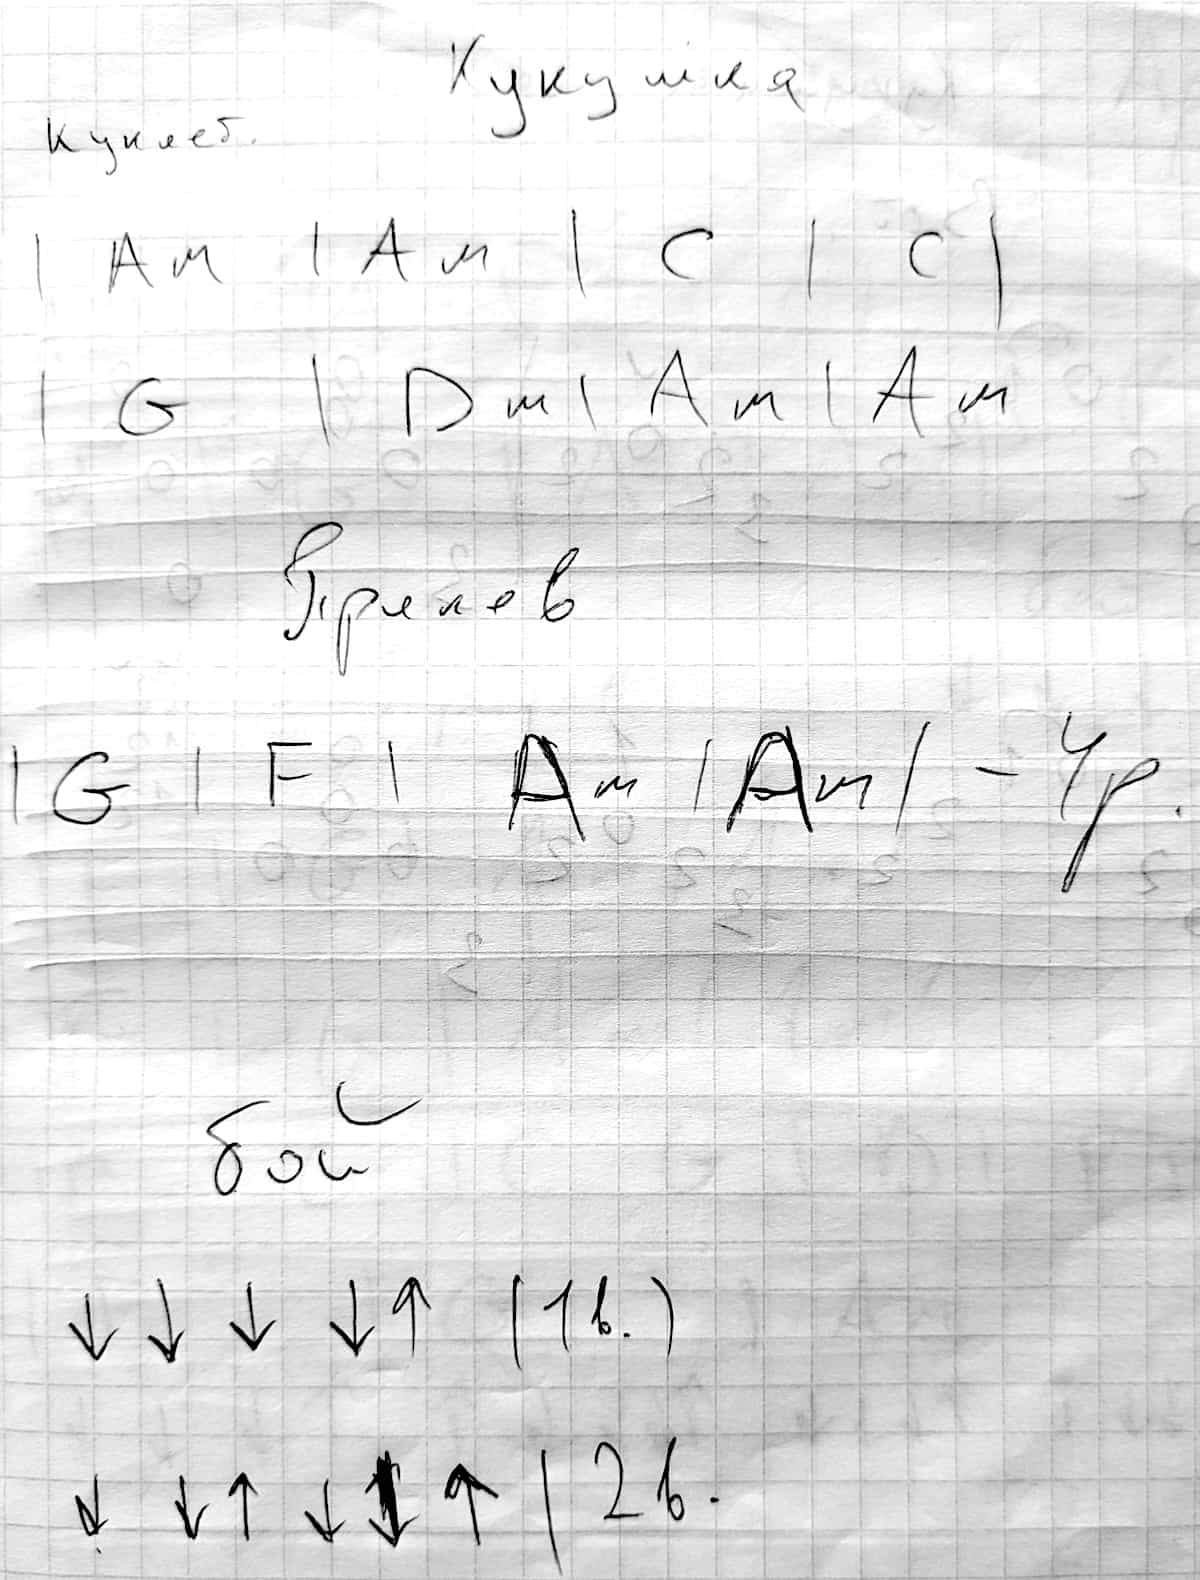 Кукушка
Куплет.
| Am | Am | C | C |
| G | Dm | Am | Am
Припев
| G | F | Am | Am | - 4р.
бой
↓ ↓ ↓ ↓ ↑ (1в.)
↓ ↓ ↑ ↓ ↓ ↑ | 2в.